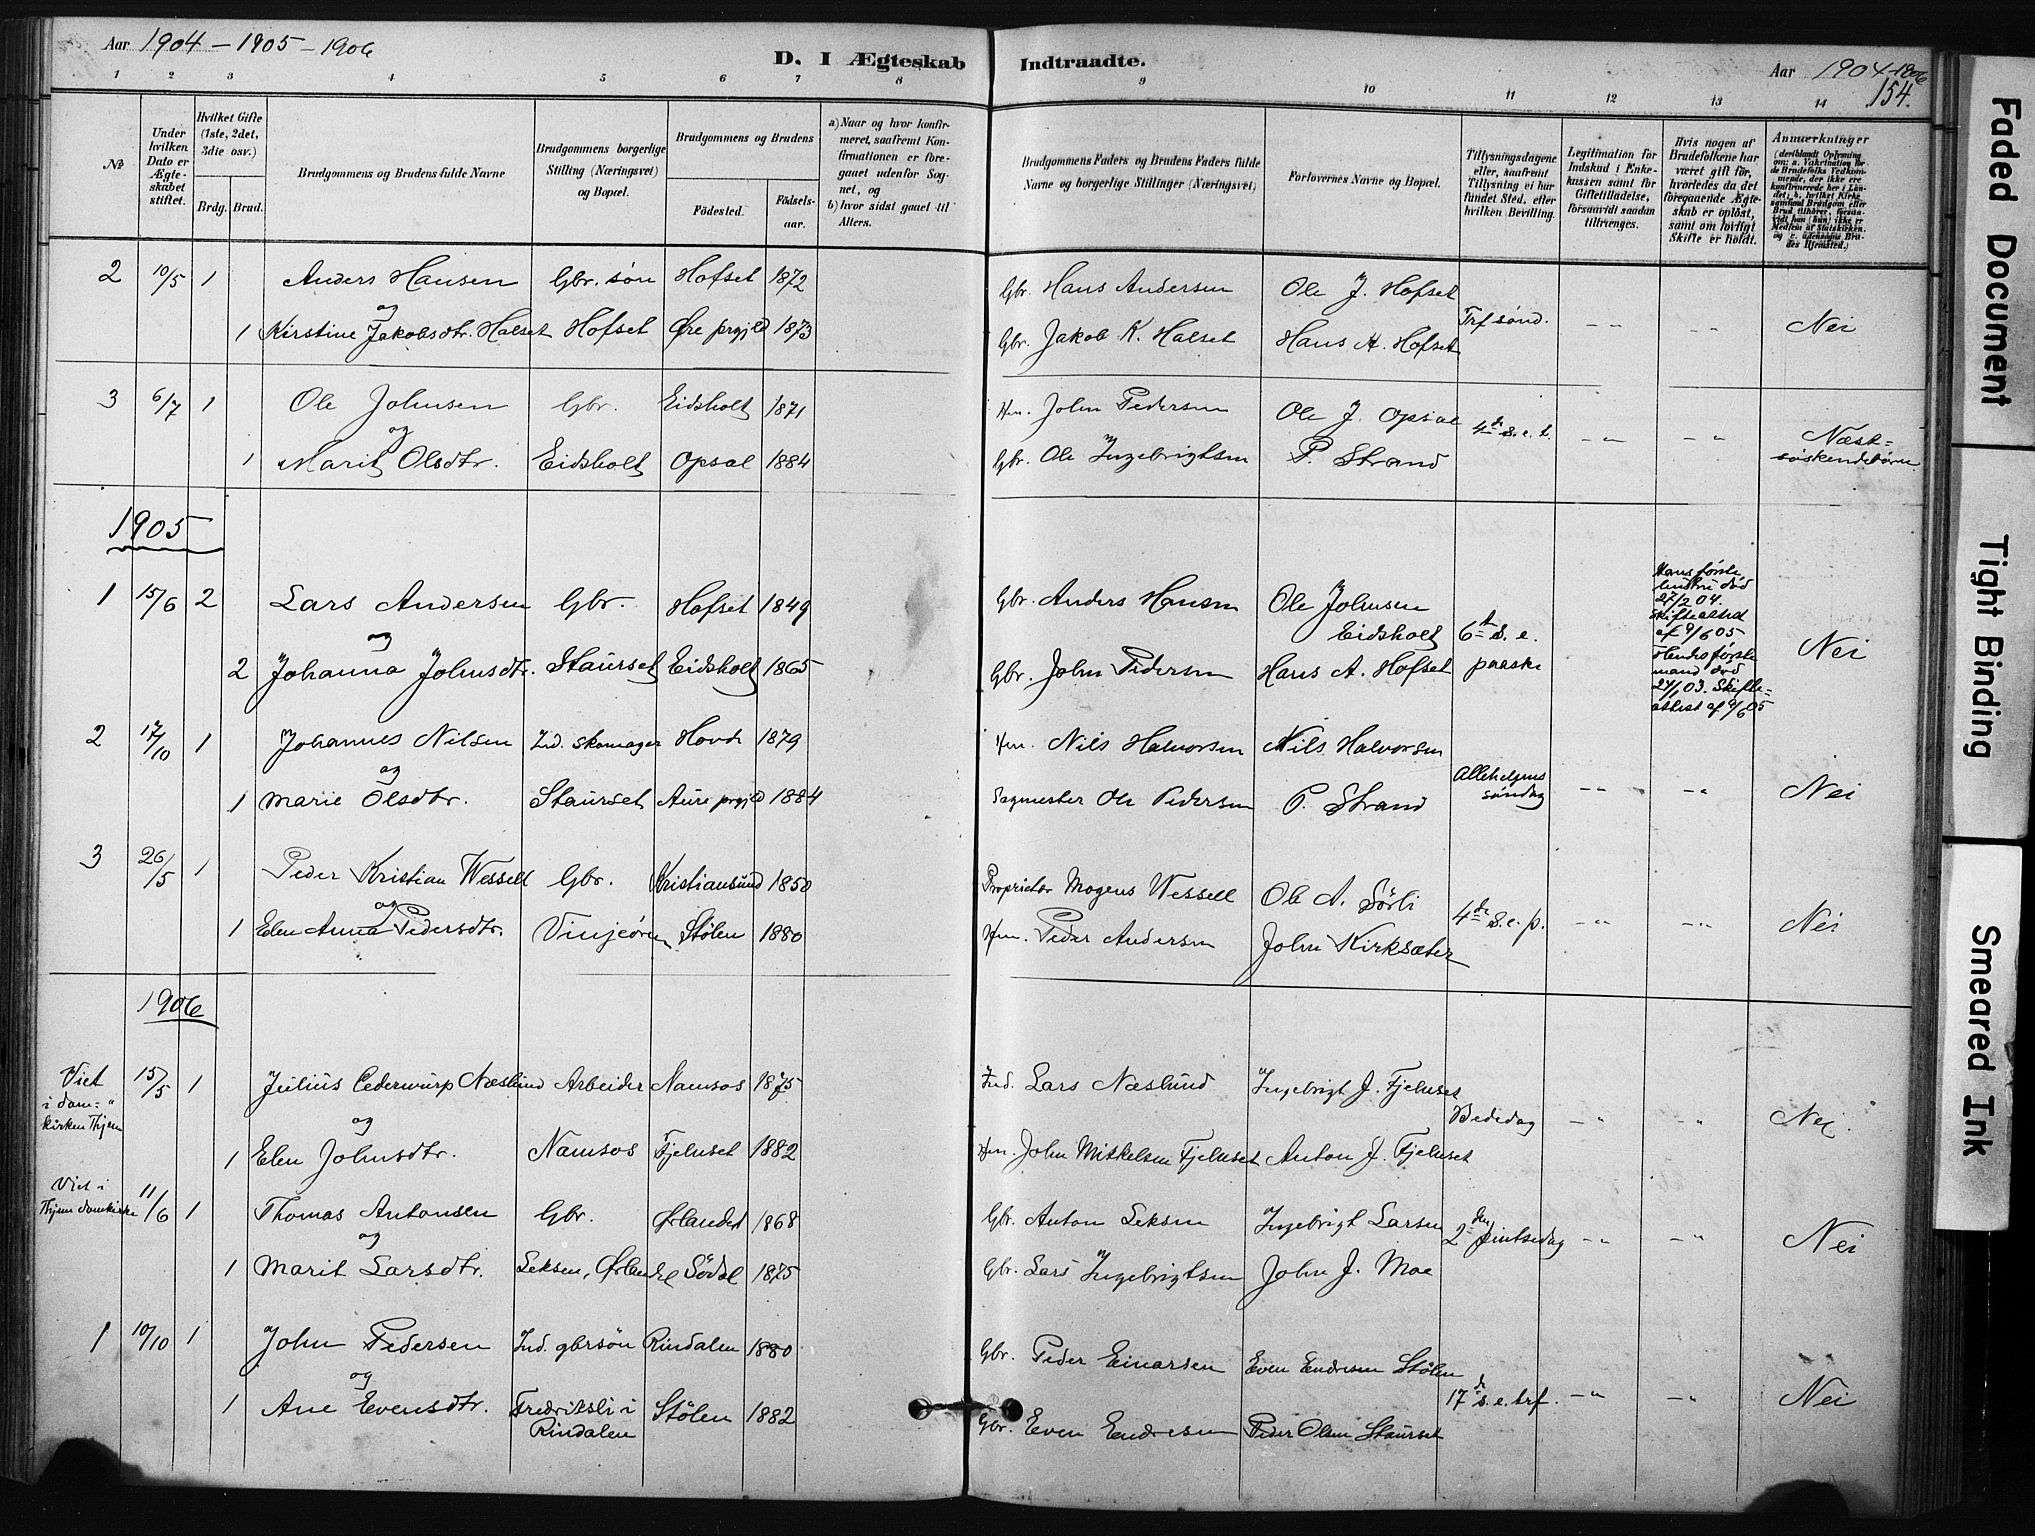 Aar 1904 - 1905 - 1906
D. I Ægteskab Indtraadte.
Aar 1904-1906
154.
1 2 3 4 5 6 7 8 9 10 11 12 13 14
No
Under hvilken Dato er Ægteskabet stiftet.
Hvilket Gifte (1ste, 2det, 3die osv.)
Brdg. Brud.
Brudgommens og Brudens fulde Navne
Brudgommens borgerlige Stilling (Næringsvei) og Bopæl.
Brudgommens og Brudens
Födested.
Födsels-aar.
a) Naar og hvor konfirmeret, saafremt Konfirmationen er foregaaet udenfor Sognet, og
b) hvor sidst gaaet til Alters.
Brudgommens Faders og Brudens Faders fulde Navne og borgerlige Stillinger (Næringsvei)
Forlovernes Navne og Bopæl.
Tillysningsdagene eller, saafremt Tillysning ei har fundet Sted, efter hvilken Bevilling.
Legitimation for Indskud i Enkekassen samt for Giftetilladelse, forsaavidt saadan tiltrænges.
Hvis nogen af Brudefolkene har været gift før, hvorledes da det foregaaende Ægteskab er opløst, samt om lovligt Skifte er holdt.
Anmærkninger
(deriblandt Oplysning om: a. Vakcination for de Brudefolks Vedkommende, der ikke ere konfirmerede her i Landet; b. hvilket Kirkesamfund Brudgom eller Brud tilhører, forsaavidt han (hun) ikke er Medlem af Statskirken, og c. udensogns Brudes Hjemsted.)
2 10/5 1 Anders Hansen Gbr. søn Hofset 1872 Gbr. Hans Andersen Ole J. Hofset
og
1 Kirstine Jakobsdtr. Halset Hofset Øre prgjld 1873 Gbr. Jakob K. Halset Hans A. Hofset Trf sønd. -"- -"- Nei
3 6/7 1 Ole Johnsen Gbr. Eidsholt 1871 Hm. John Pedersen Ole J. Opsal 4de s. e. t. -"- -"- Næst=
og
1 Marit Olsdtr. Eidsholt Opsal 1884 Gbr. Ole Ingebrigtsen P. Strand søskendebørn
1905
1 15/6 2 Lars Andersen Gbr. Hofset 1849 Gbr. Anders Hansen Ole Johnsen Eidsholt 6te s. e. paaske
og
2 Johanna Johnsdtr. Staurset Eidsholt 1865 Gbr. John Pedersen Hans A. Hofset Nei
Hans første
hustru død
27/2 04.
Skifteattest
af 9/6 05
Hendes første
mand død
24/1 03. Skifte=
attest af 9/6 05
2 17/10 1 Johannes Nilsen Ind. skomager Hovde 1879 Hm. Nils Halvorsen Nils Halvorsen
og
1 Marie Olsdtr. Staurset Aure prgjld 1884 Sagmester Ole Pedersen P. Strand Allehelgens søndag -"- -"- Nei
3 26/5 1 Peder Kristian Wessell Gbr. Kristiansund 1850 Proprietær Mogens Wessell Ole A. Sørli
og
1 Elen Anna Pedersdtr. Vinjeøren Stølen 1880 Hm. Peder Andersen John Kirksæter 4de s. e. p. -"- -"- Nei
1906
Viet i dom=kirken Thjem 15/5 1 Julius Cederwurp Næslund Arbeider Namsos 1875 Ind. Lars Næslund Ingebrigt J. Fjelnset
og
1 Elen Johnsdtr. Namsos Fjelnset 1882 Hm. John Mikkelsen Fjelnset Anton J. Fjelnset Bededag -"- -"- Nei.
Viet i Thjem domkirke 11/6 1 Thomas Antonsen Gbr. Ørlandet 1868 Gbr. Anton Leksen Ingebrigt Larsen
og
1 Marit Larsdtr. Leksen, Ørlandet Södal 1875 Gbr. Lars Ingebrigtsen John J. Moe 2den pintsedag -"- -"- Nei
1 10/10 1 John Pedersen Ind. gbrsön Rindalen 1880 Gbr. Peder Einarsen Even Endresen Stölen
og
1 Ane Evensdtr. Fredriksli i Rindalen Stölen 1882 Gbr. Even Endresen Peder Olsen Staurset 17de s. e. trf. -"- -"- Nei
Faded Document
Tight Binding
Smeared Ink